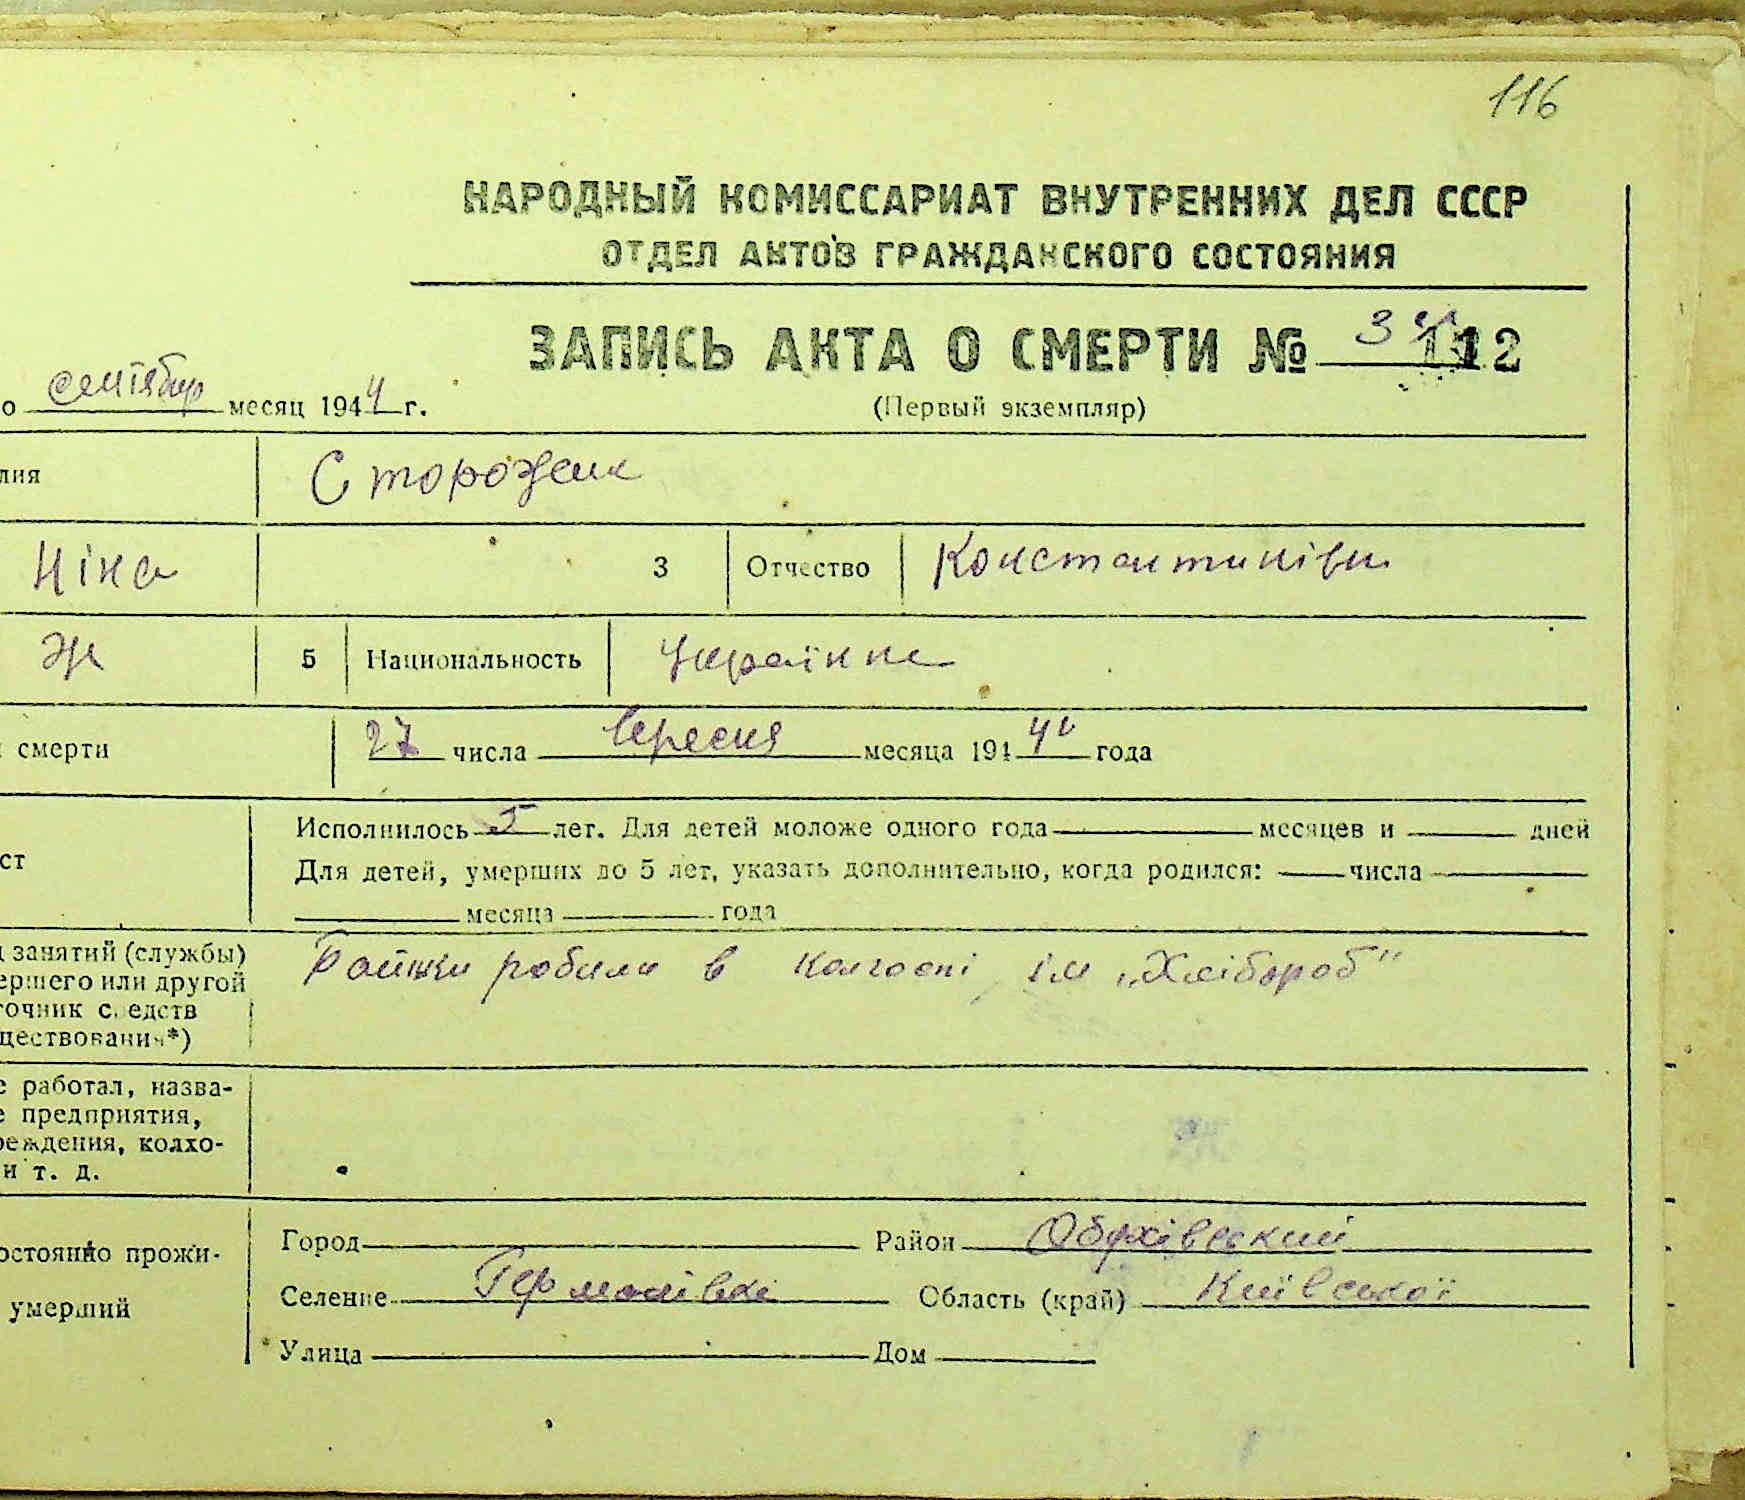 116
НАРОДНЫЙ КОМИССАРИАТ ВНУТРЕННИХ ДЕЛ СССР
ОТДЕЛ АКТОВ ГРАЖДАНСКОГО СОСТОЯНИЯ
ЗАПИСЬ АКТА О СМЕРТИ № 112
о сентябр месяц 1944 г.
(Первый экземпляр)
лия Сторожен
Ніна 3 Отчество Константинівн
ж 5 Национальность Українка
смерти 27 числа вересня месяца 1944 года
Исполнилось 5 лет. Для детей моложе одного года месяцев и дней
ст
Для детей, умерших до 5 лет, указать дополнительно, когда родился: числа
месяца года
занятий (службы) робили в колгоспі ім „Хлібороб"
ершего или другой
точник средств
ществования*)
е работал, назва-
е предприятия,
реждения, колхо-
и т. д.
Город Район Обухівський
остоянно прожи-
Селение Германівкі Область (край) Київської
умерший
Улица Дом